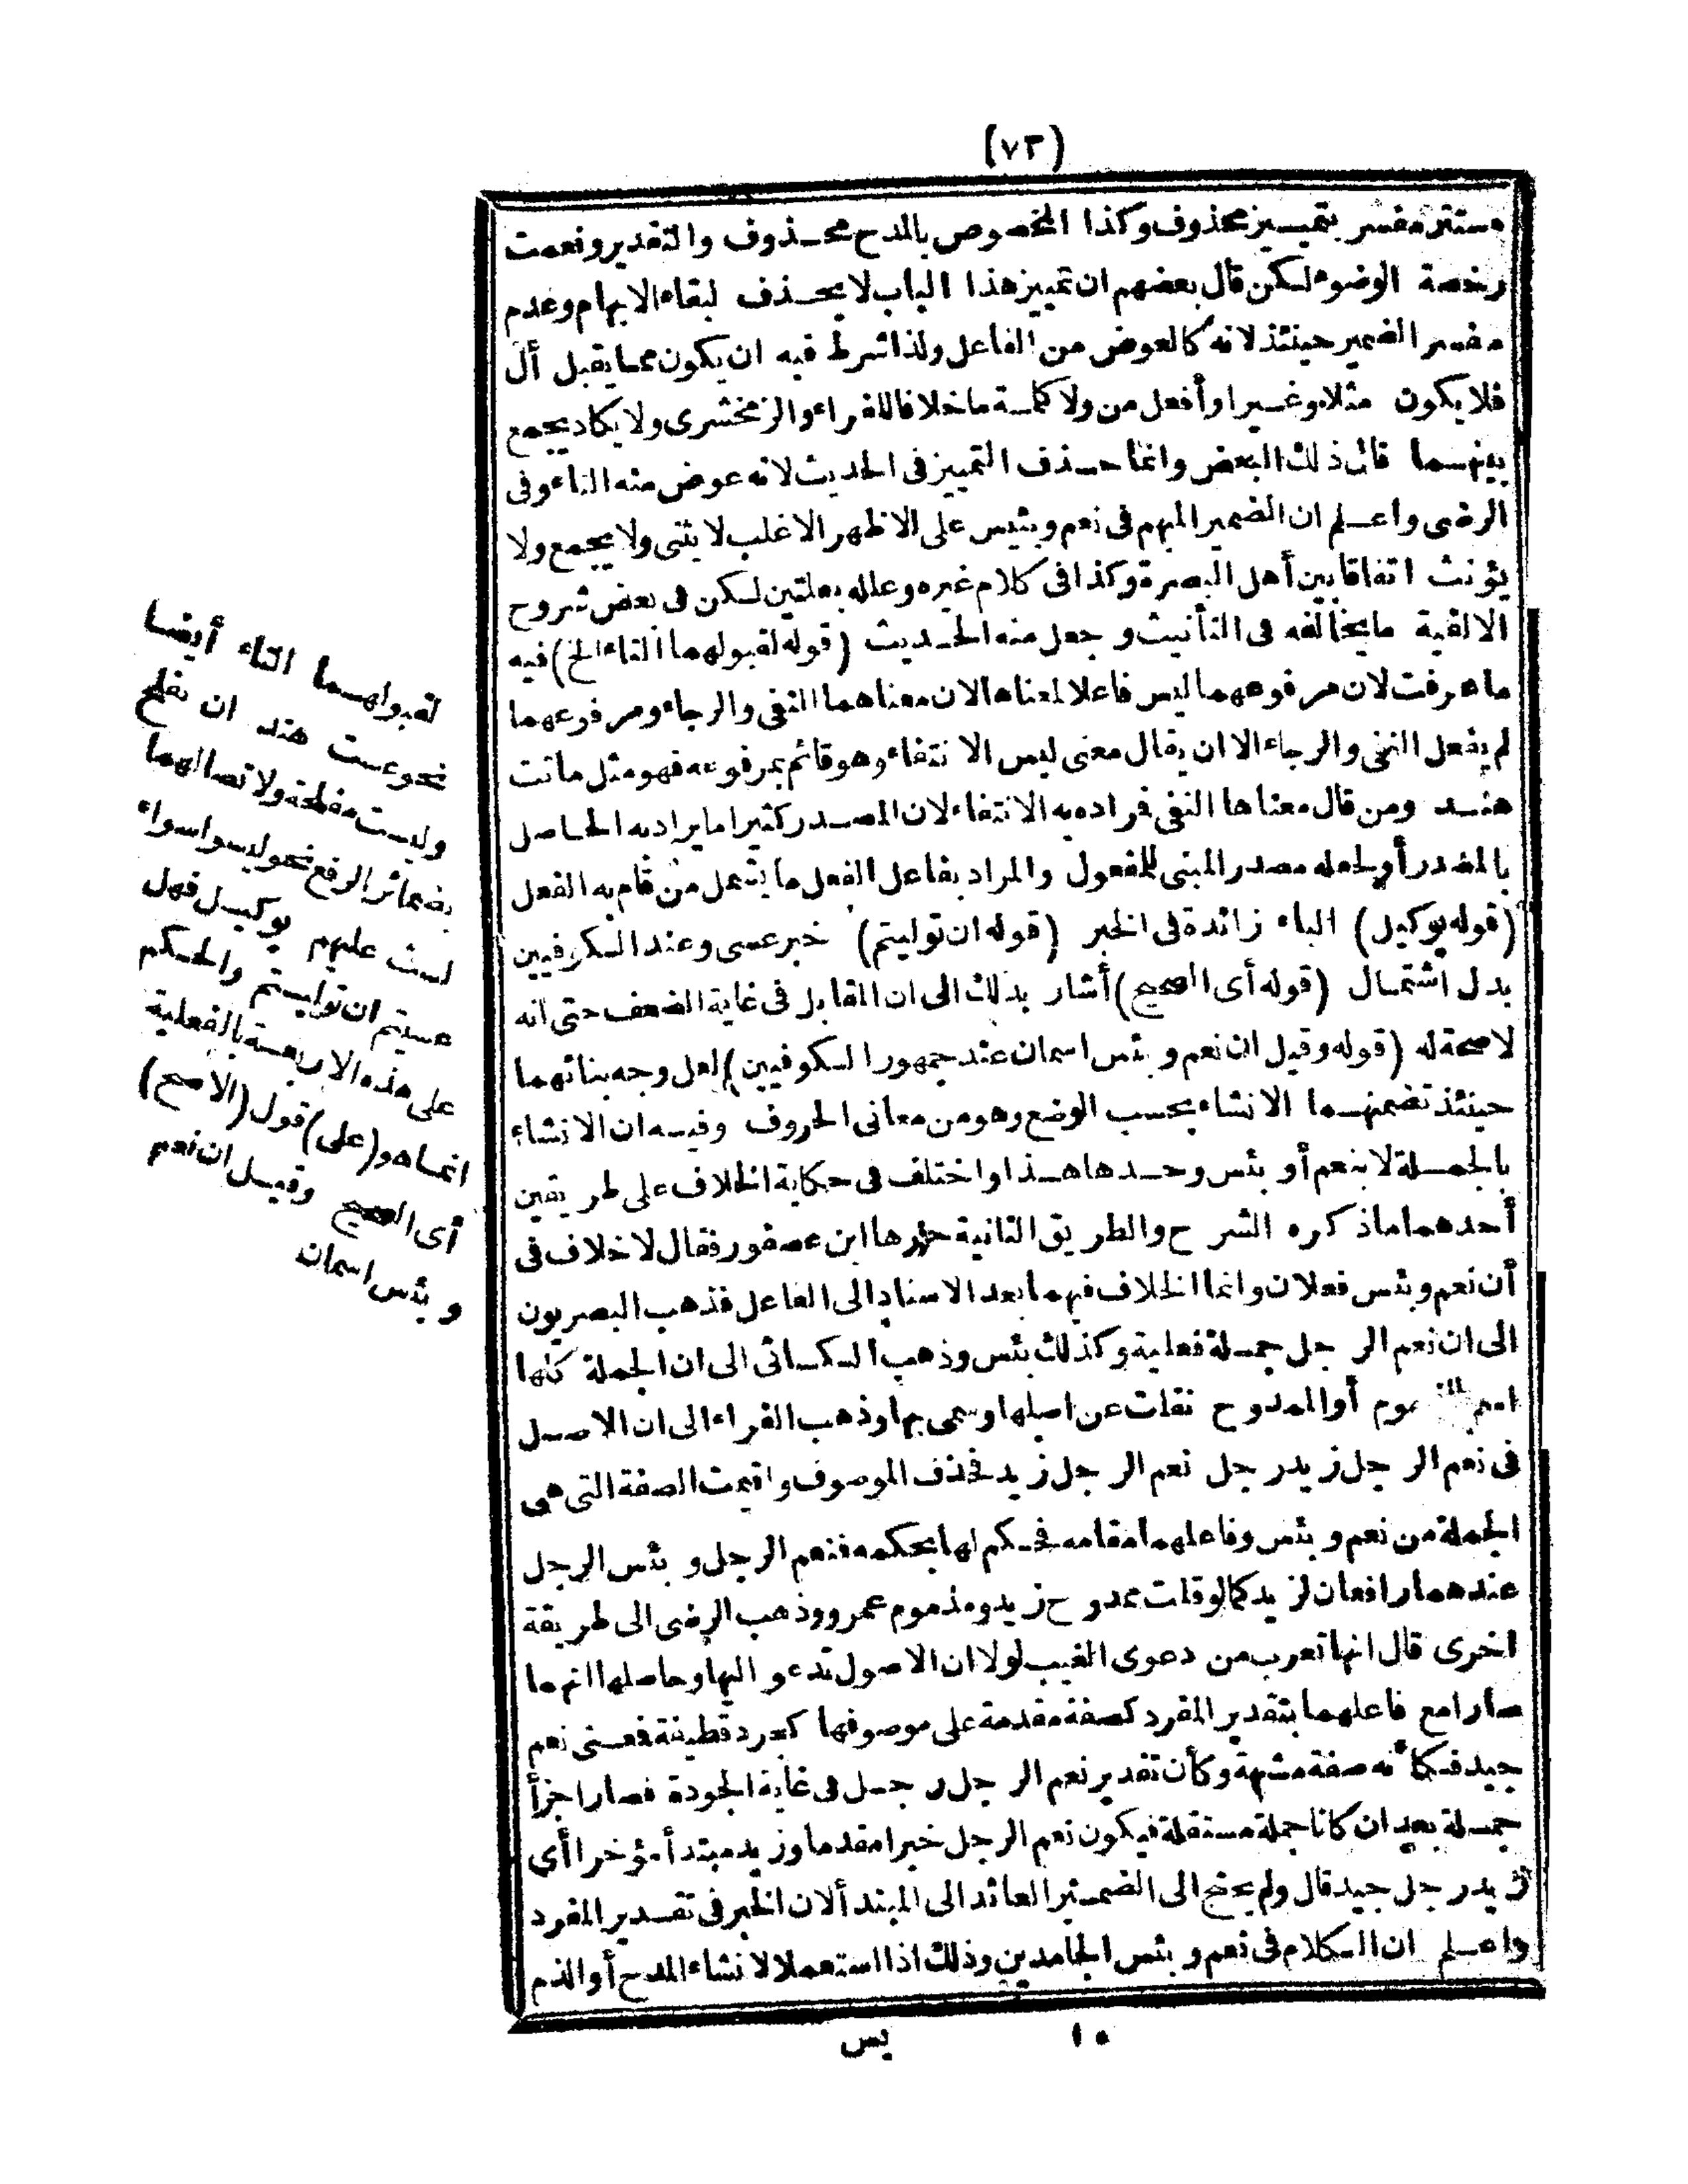 (٧٣)
مستتر مفسر بتمييز محذوف وكذا المخصوص بالمدح محذوف والتقدير ونعمت
رخصة الوضوء لكن قال بعضهم ان تمييز هذا الباب لا يحذف لبقاء الابهام وعدم
مفسر الضمير حينئذ لانه كالعوض من الفاعل ولذا شرط فيه ان يكون مما يقبل أل
فلا يكون مثلا وغيرا وأفعل من ولا كلمة ما خلافا للفراء والزمخشرى ولا يكاد يجمع
بينهما قال ذلك البعض وانما حذف التمييز فى الحديث لانه عوض منه التاء وفى
الرضى واعلم ان الضمير المبهم فى نعم وبئس على الاظهر الاغلب لا يثنى ولا يجمع ولا
يؤنث اتفاقا بين أهل البصرة وكذا فى كلام غيره وعلله بعلتين لكن فى بعض شروح
الالفية ما يخالفه فى التأنيث وجعل منه الحديث (قوله لقبولهما التاء الخ) فيه
ما عرفت لان مرفوعهما ليس فاعلا لمعناها لان معناهما النفى والرجاء ومرفوعهما
لم يفعل النفى والرجاء الا ان يقال معنى ليس الانتفاء وهو قائم بمرفوعه فهو مثل ماتت
هند ومن قال معناها النفى فراده به الانتفاء لان المصدر كثيرا ما يراد به الحاصل
بالمصدر أو لجعله مصدر المبنى للمفعول والمراد بفاعل الفعل ما يشمل من قام به الفعل
(قوله بوكيل) الباء زائدة فى الخبر (قوله ان توليتم) خبر عسى وعند الكوفيين
بدل اشتمال (قوله أى الصحيح) أشار بذلك الى ان المقابل فى غاية الضعف حتى انه
لا صحة له (قوله وقيل ان نعم وبئس اسمان عند جمهور الكوفيين) لعل وجه بنائهما
حينئذ تضمنهما الانشاء بحسب الوضع وهو من معانى الحروف وفيه ان الانشاء
بالجملة لا بنعم أو بئس وحدها هذا واختلف فى حكاية الخلاف على طريقين
أحدهما ما ذكره الشرح والطريق الثانية حررها ابن عصفور فقال لا خلاف فى
أن نعم وبئس فعلان وانما الخلاف فيهما بعد الاسناد الى الفاعل فذهب البصريون
الى ان نعم الرجل جملة فعلية وكذلك بئس وذهب الكسائى الى ان الجملة كلها
اسم أو الممدوح نقلت عن اصلها وسمى بها وذهب الفراء الى ان الاصل
فى نعم الرجل زيد رجل نعم الرجل زيد فحذف الموصوف واقيمت الصفة التى هى
الجملة من نعم وبئس وفاعلهما مقامه فحكم لها بحكمه فنعم الرجل وبئس الرجل
عندهما رافعان لزيد كما لو قلت ممدوح زيد ومذموم عمرو وذهب الرضى الى طريقة
اخرى قال انها تعرب من دعوى الغيب لولا ان الاصول تدعو اليها وحاصلها انهما
صارا مع فاعلهما بتقدير المفرد كصفة مقدمة على موصوفها كجرد قطيفة فعنى نعم
جيد فكأنه صفة مشبهة وكأن تقدير نعم الرجل رجل فى غاية الجودة فصارا جزأ
جملة بعد ان كانا جملة مستقلة فيكون نعم الرجل خبرا مقدما وزيد مبتدأ مؤخرا أى
زيد رجل جيد قال ولم يحتج الى الضمير العائد الى المبتدأ لان الخبر فى تقدير المفرد
واعلم ان الكلام فى نعم وبئس الجامدين وذلك اذا استعملا لانشاء المدح أو الذم
لقبولهما التاء أيضا
نحو عست هند ان تفلح
وليست مفلحة ولاتصالهما
بضمائر الرفع نحو ليسوا سواء
لست عليهم بوكيل فهل
عسيتم ان توليتم والحكم
على هذه الاربعة بالفعلية
انما هو (على) قول (الاصح)
أى الصحيح وقيل ان نعم
وبئس اسمان
١٠ يس